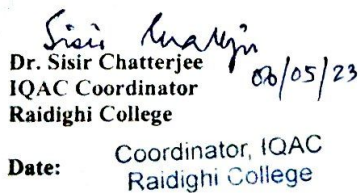 Sisir Chatterjee
Dr. Sisir Chatterjee
IQAC Coordinator
06/05/23
Raidighi College
Date:
Coordinator, IQAC
Raidighi College